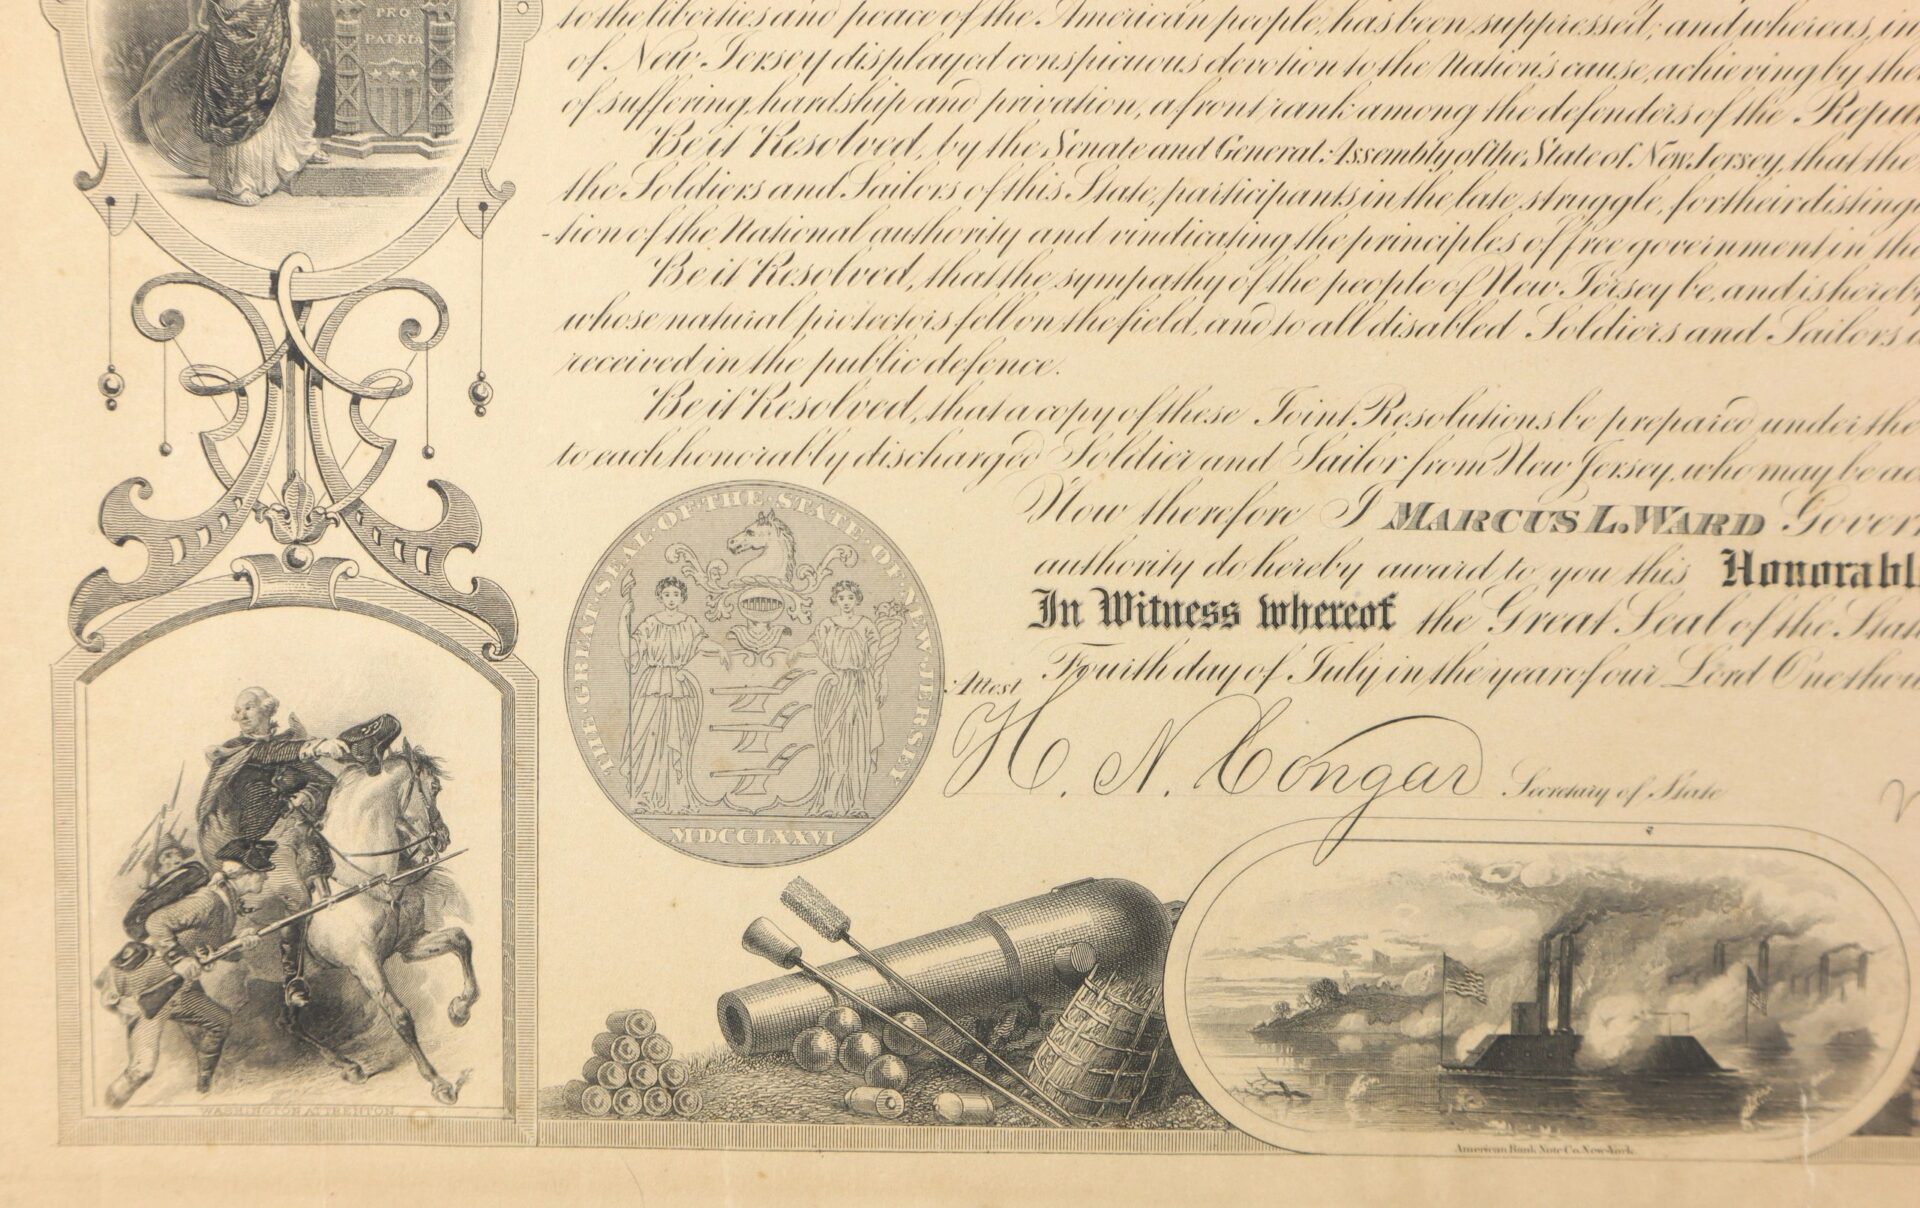 PRO
PATRIA
to the liberties and peace of the American people, has been suppressed; and whereas, in
of New Jersey displayed conspicuous devotion to the Nation's cause, achieving by the
of suffering, hardship and privation, a front rank among the defenders of the Repu
Be it Resolved, by the Senate and General Assembly of the State of New Jersey, that the
the Soldiers and Sailors of this State, participants in the late struggle, for their disting
-tion of the National authority and vindicating the principles of free government in the
Be it Resolved, that the sympathy of the people of New Jersey be, and is hereby
whose natural protectors fell on the field, and to all disabled Soldiers and Sailors
received in the public defence.
Be it Resolved, that a copy of these Joint Resolutions be prepared under the
to each honorably discharged Soldier and Sailor from New Jersey, who may be ac
Now therefore I MARCUS L. WARD Govern
authority do hereby award to you this Honorabl
In Witness whereof the Great Seal of the State
Fourth day of July in the year of our Lord One thou
Attest
H. N. Congar Secretary of State
THE GREAT SEAL OF THE STATE OF NEW JERSEY
MDCCLXXVI
WASHINGTON AT TRENTON
American Bank Note Co. New York.